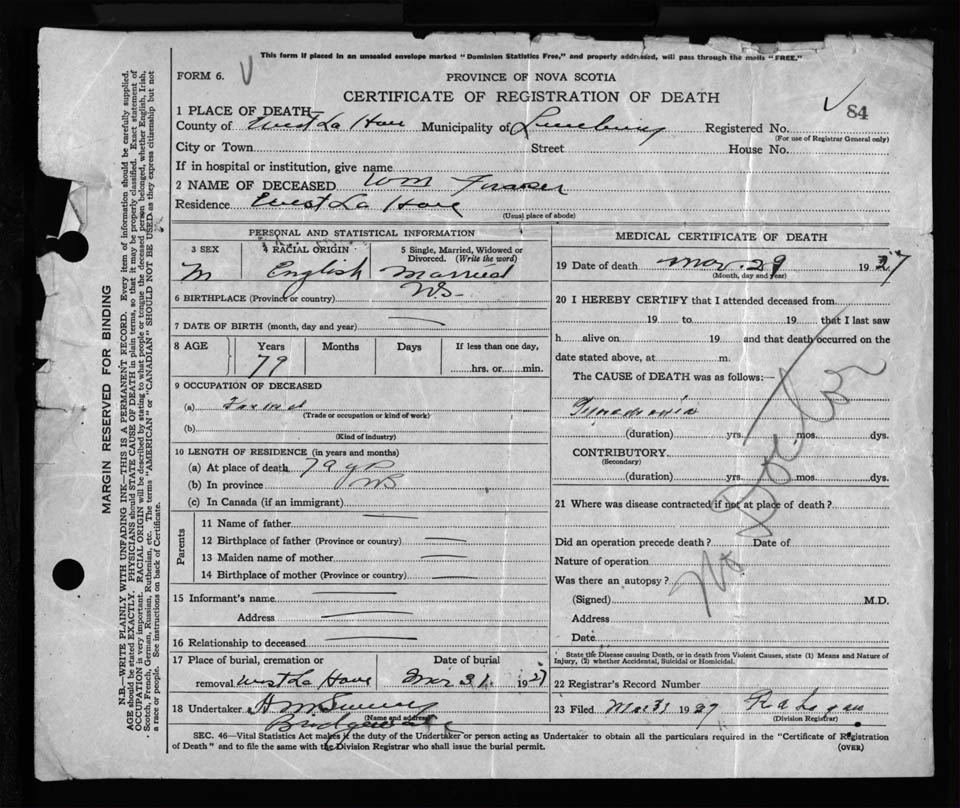 This form if placed in an unsealed envelope marked "Dominion Statistics Free," and properly addressed, will pass through the mails "FREE."
FORM 6.
PROVINCE OF NOVA SCOTIA
CERTIFICATE OF REGISTRATION OF DEATH
84
1 PLACE OF DEATH—
County of West La Have Municipality of Lunenburg Registered No.
(For use of Registrar General only)
City or Town Street House No.
If in hospital or institution, give name
2 NAME OF DECEASED Wm Fraser
Residence West La Have
(Usual place of abode)
PERSONAL AND STATISTICAL INFORMATION
3 SEX 4 RACIAL ORIGIN 5 Single, Married, Widowed or Divorced. (Write the word)
M English Married
6 BIRTHPLACE (Province or country) N.S.
7 DATE OF BIRTH (month, day and year)
8 AGE Years Months Days If less than one day,
79 hrs. or min.
9 OCCUPATION OF DECEASED
(a)
(Trade or occupation or kind of work)
(b)
(Kind of industry)
10 LENGTH OF RESIDENCE (in years and months)
(a) At place of death 79 yr
(b) In province NS
(c) In Canada (if an immigrant)
Parents
11 Name of father
12 Birthplace of father (Province or country)
13 Maiden name of mother
14 Birthplace of mother (Province or country)
15 Informant's name
Address
16 Relationship to deceased
17 Place of burial, cremation or Date of burial
removal West La Have Mar 31 1927
18 Undertaker
(Name and address)
Bridgewater
MEDICAL CERTIFICATE OF DEATH
19 Date of death Mar. 29 1927
(Month, day and year)
20 I HEREBY CERTIFY that I attended deceased from
19 to 19 that I last saw
h alive on 19 and that death occurred on the
date stated above, at m.
The CAUSE of DEATH was as follows:—
(duration) yrs. mos. dys.
CONTRIBUTORY
(Secondary)
(duration) yrs. mos. dys.
No Doctor
21 Where was disease contracted if not at place of death?
Did an operation precede death? Date of
Nature of operation
Was there an autopsy?
(Signed) M.D.
Address
Date
State the Disease causing Death, or in death from Violent Causes, state (1) Means and Nature of
Injury, (2) whether Accidental, Suicidal or Homicidal.
22 Registrar's Record Number
23 Filed Mar 31 1927
(Division Registrar)
SEC. 46—Vital Statistics Act makes it the duty of the Undertaker or person acting as Undertaker to obtain all the particulars required in the "Certificate of Registration
of Death" and to file the same with the Division Registrar who shall issue the burial permit.
(OVER)
MARGIN RESERVED FOR BINDING
N.B.—WRITE PLAINLY WITH UNFADING INK—THIS IS A PERMANENT RECORD. Every item of information should be carefully supplied.
AGE should be stated EXACTLY. PHYSICIANS should STATE CAUSE OF DEATH in plain terms, so that it may be properly classified. Exact statement of
OCCUPATION is very important. RACIAL ORIGIN will be described by stating to what people or tongue the deceased person belonged, whether English, Irish,
Scotch, French, German, Russian, Ruthenian, etc. The terms "AMERICAN" or "CANADIAN" SHOULD NOT BE USED as they express citizenship but not
a race or people. See instructions on back of Certificate.